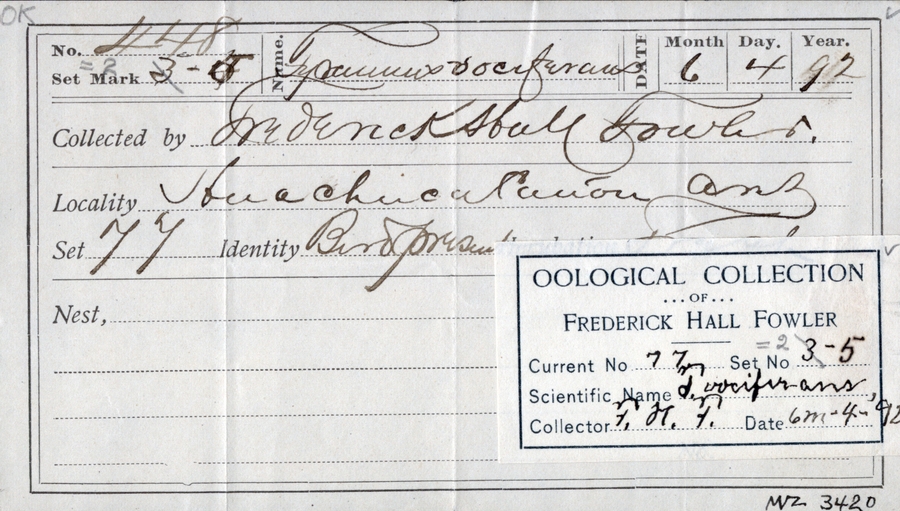 OK
No. 448 Name. Tyrannus vociferans DATE Month Day. Year.
Set Mark =2 3-5 6 4 92
Collected by Frederick Hall Fowler.
Locality Huachuca Canon Ariz
Set 77 Identity Bird present
Nest,
OOLOGICAL COLLECTION
...OF...
FREDERICK HALL FOWLER
Current No 77 Set No =2 3-5
Scientific Name T. vociferans
Collector F. H. F. Date 6m-4-'92
MVZ 3420